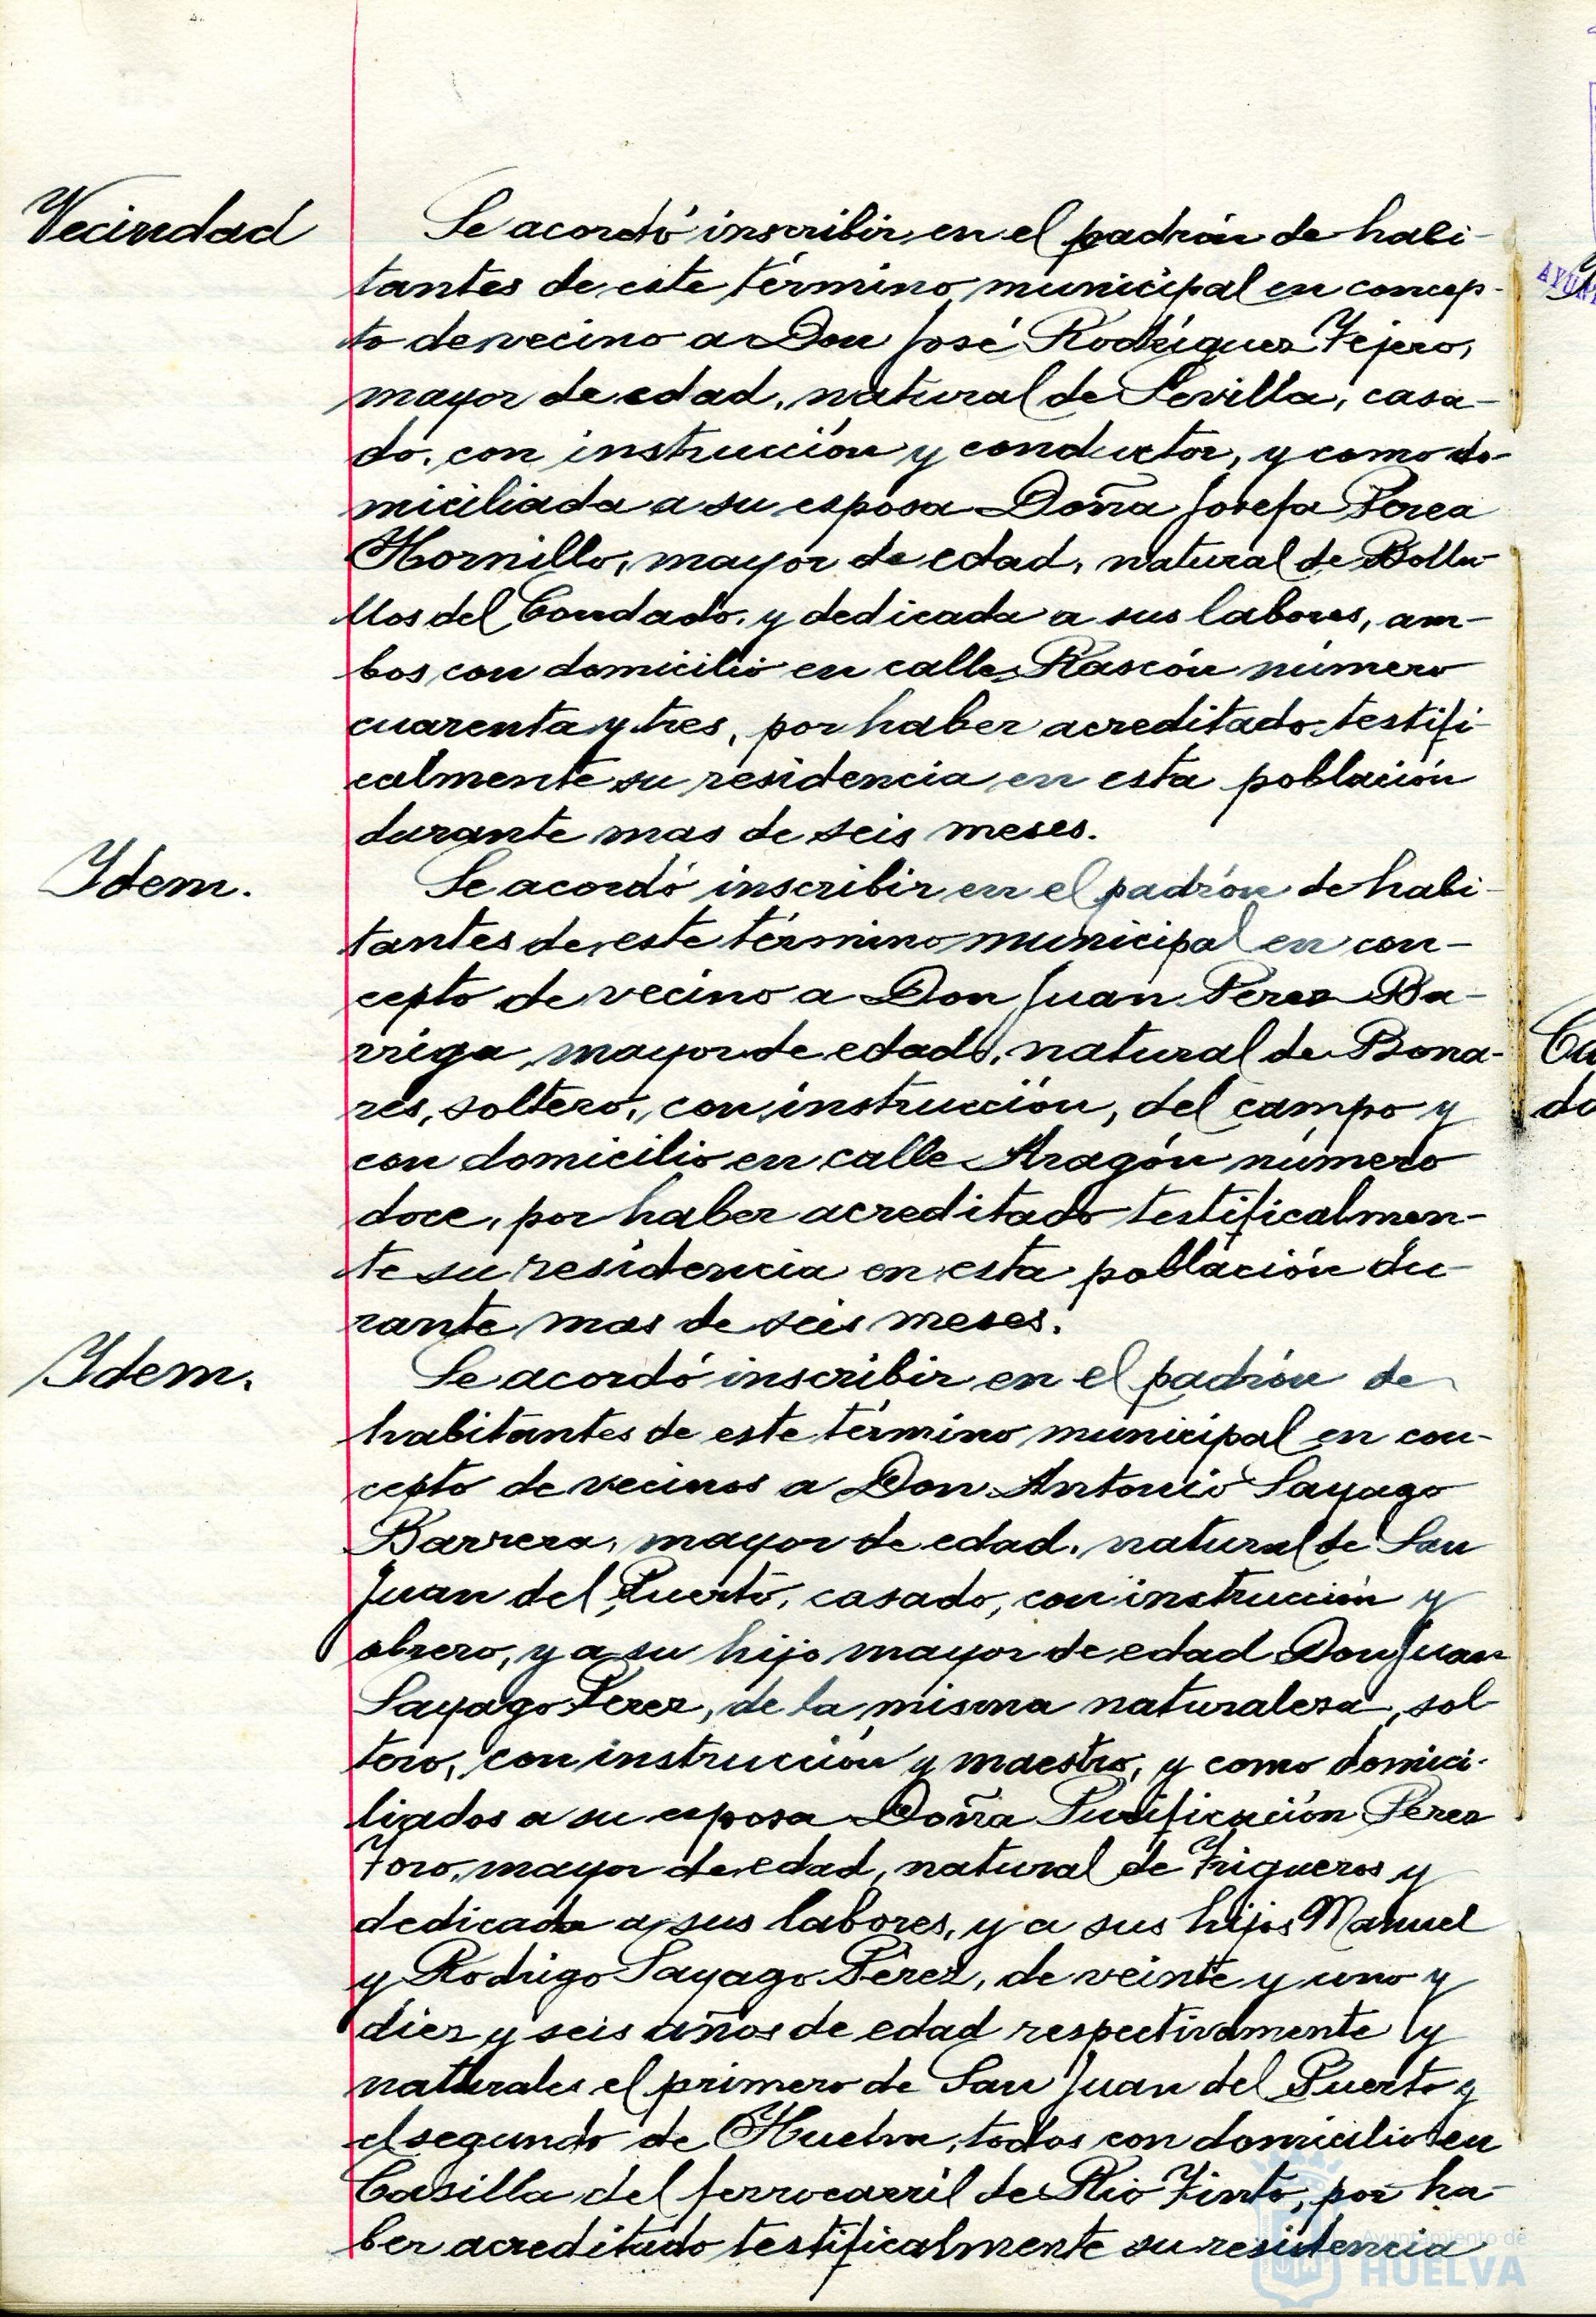 Vecindad
Se acordó inscribir en el padrón de habi-
tantes de este término municipal en concep-
to de vecino a Don José Rodríguez Tejero,
mayor de edad, natural de Sevilla, casa-
do, con instrucción y conductor, y como do-
miciliada a su esposa Doña Josefa Perea
Hornillo, mayor de edad, natural de Bollu-
llos del Condado, y dedicada a sus labores, am-
bos con domicilio en calle Rascón número
cuarenta y tres, por haber acreditado testifi-
calmente su residencia en esta población
durante mas de seis meses.
Idem.
Se acordó inscribir en el padrón de habi-
tantes de este término municipal en con-
cepto de vecino a Don Juan Perez Ba-
rriga, mayor de edad, natural de Bona-
res, soltero, con instrucción, del campo y
con domicilio en calle Aragón número
doce, por haber acreditado testificalmen-
te su residencia en esta población du-
rante mas de seis meses.
Idem.
Se acordó inscribir en el padrón de
habitantes de este término municipal en con-
cepto de vecinos a Don Antonio Sayago
Barrera, mayor de edad, natural de San
Juan del Puerto, casado, con instrucción y
obrero, y a su hijo mayor de edad Don Juan
Sayago Perez, de la misma naturaleza, sol
tero, con instrucción y maestro, y como domici-
liados a su esposa Doña Purificación Perez
Toro, mayor de edad, natural de Trigueros y
dedicada a sus labores, y a sus hijos Manuel
y Rodrigo Sayago Pérez, de veinte y uno y
diez y seis años de edad respectivamente y
naturales el primero de San Juan del Puerto y
el segundo de Huelva, todos con domicilio en
Casilla del ferrocarril de Rio Tinto, por ha-
ber acreditado testificalmente su residencia
Ayuntamiento de
HUELVA